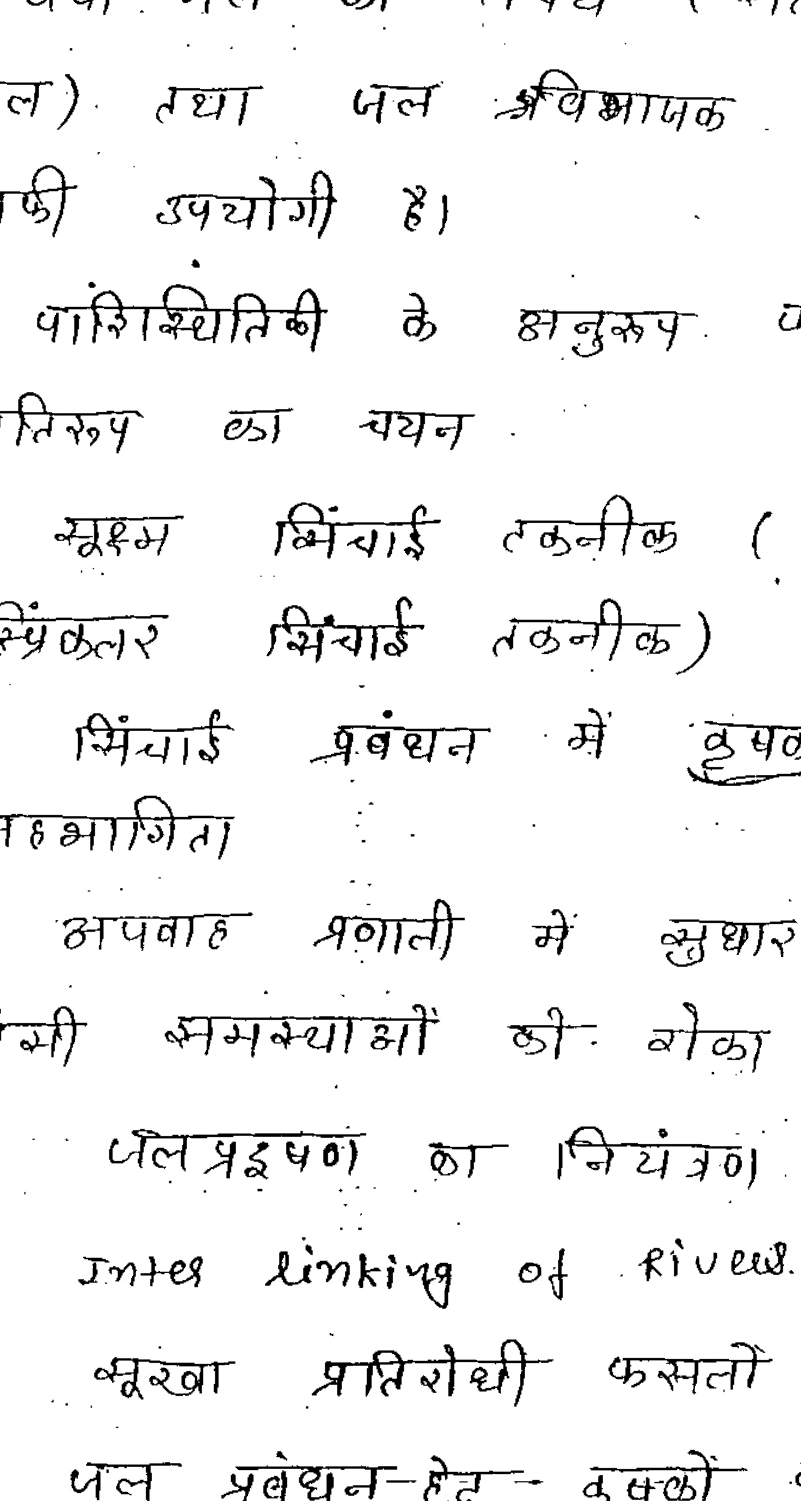 ल) तथा जल विभाजक
उपयोगी है।
पारिस्थितिकी के अनुरूप
का चयन
सूक्ष्म सिंचाई तकनीक (
स्प्रिंकलर सिंचाई तकनीक)
सिंचाई प्रबंधन में कृषक
सहभागिता
अपवाह प्रणाली में सुधार
समस्याओं को रोका
जल प्रदूषण का नियंत्रण
Inter linking of Rivers.
सूखा प्रतिरोधी फसलों
जल प्रबंधन-हेतु- कृषकों